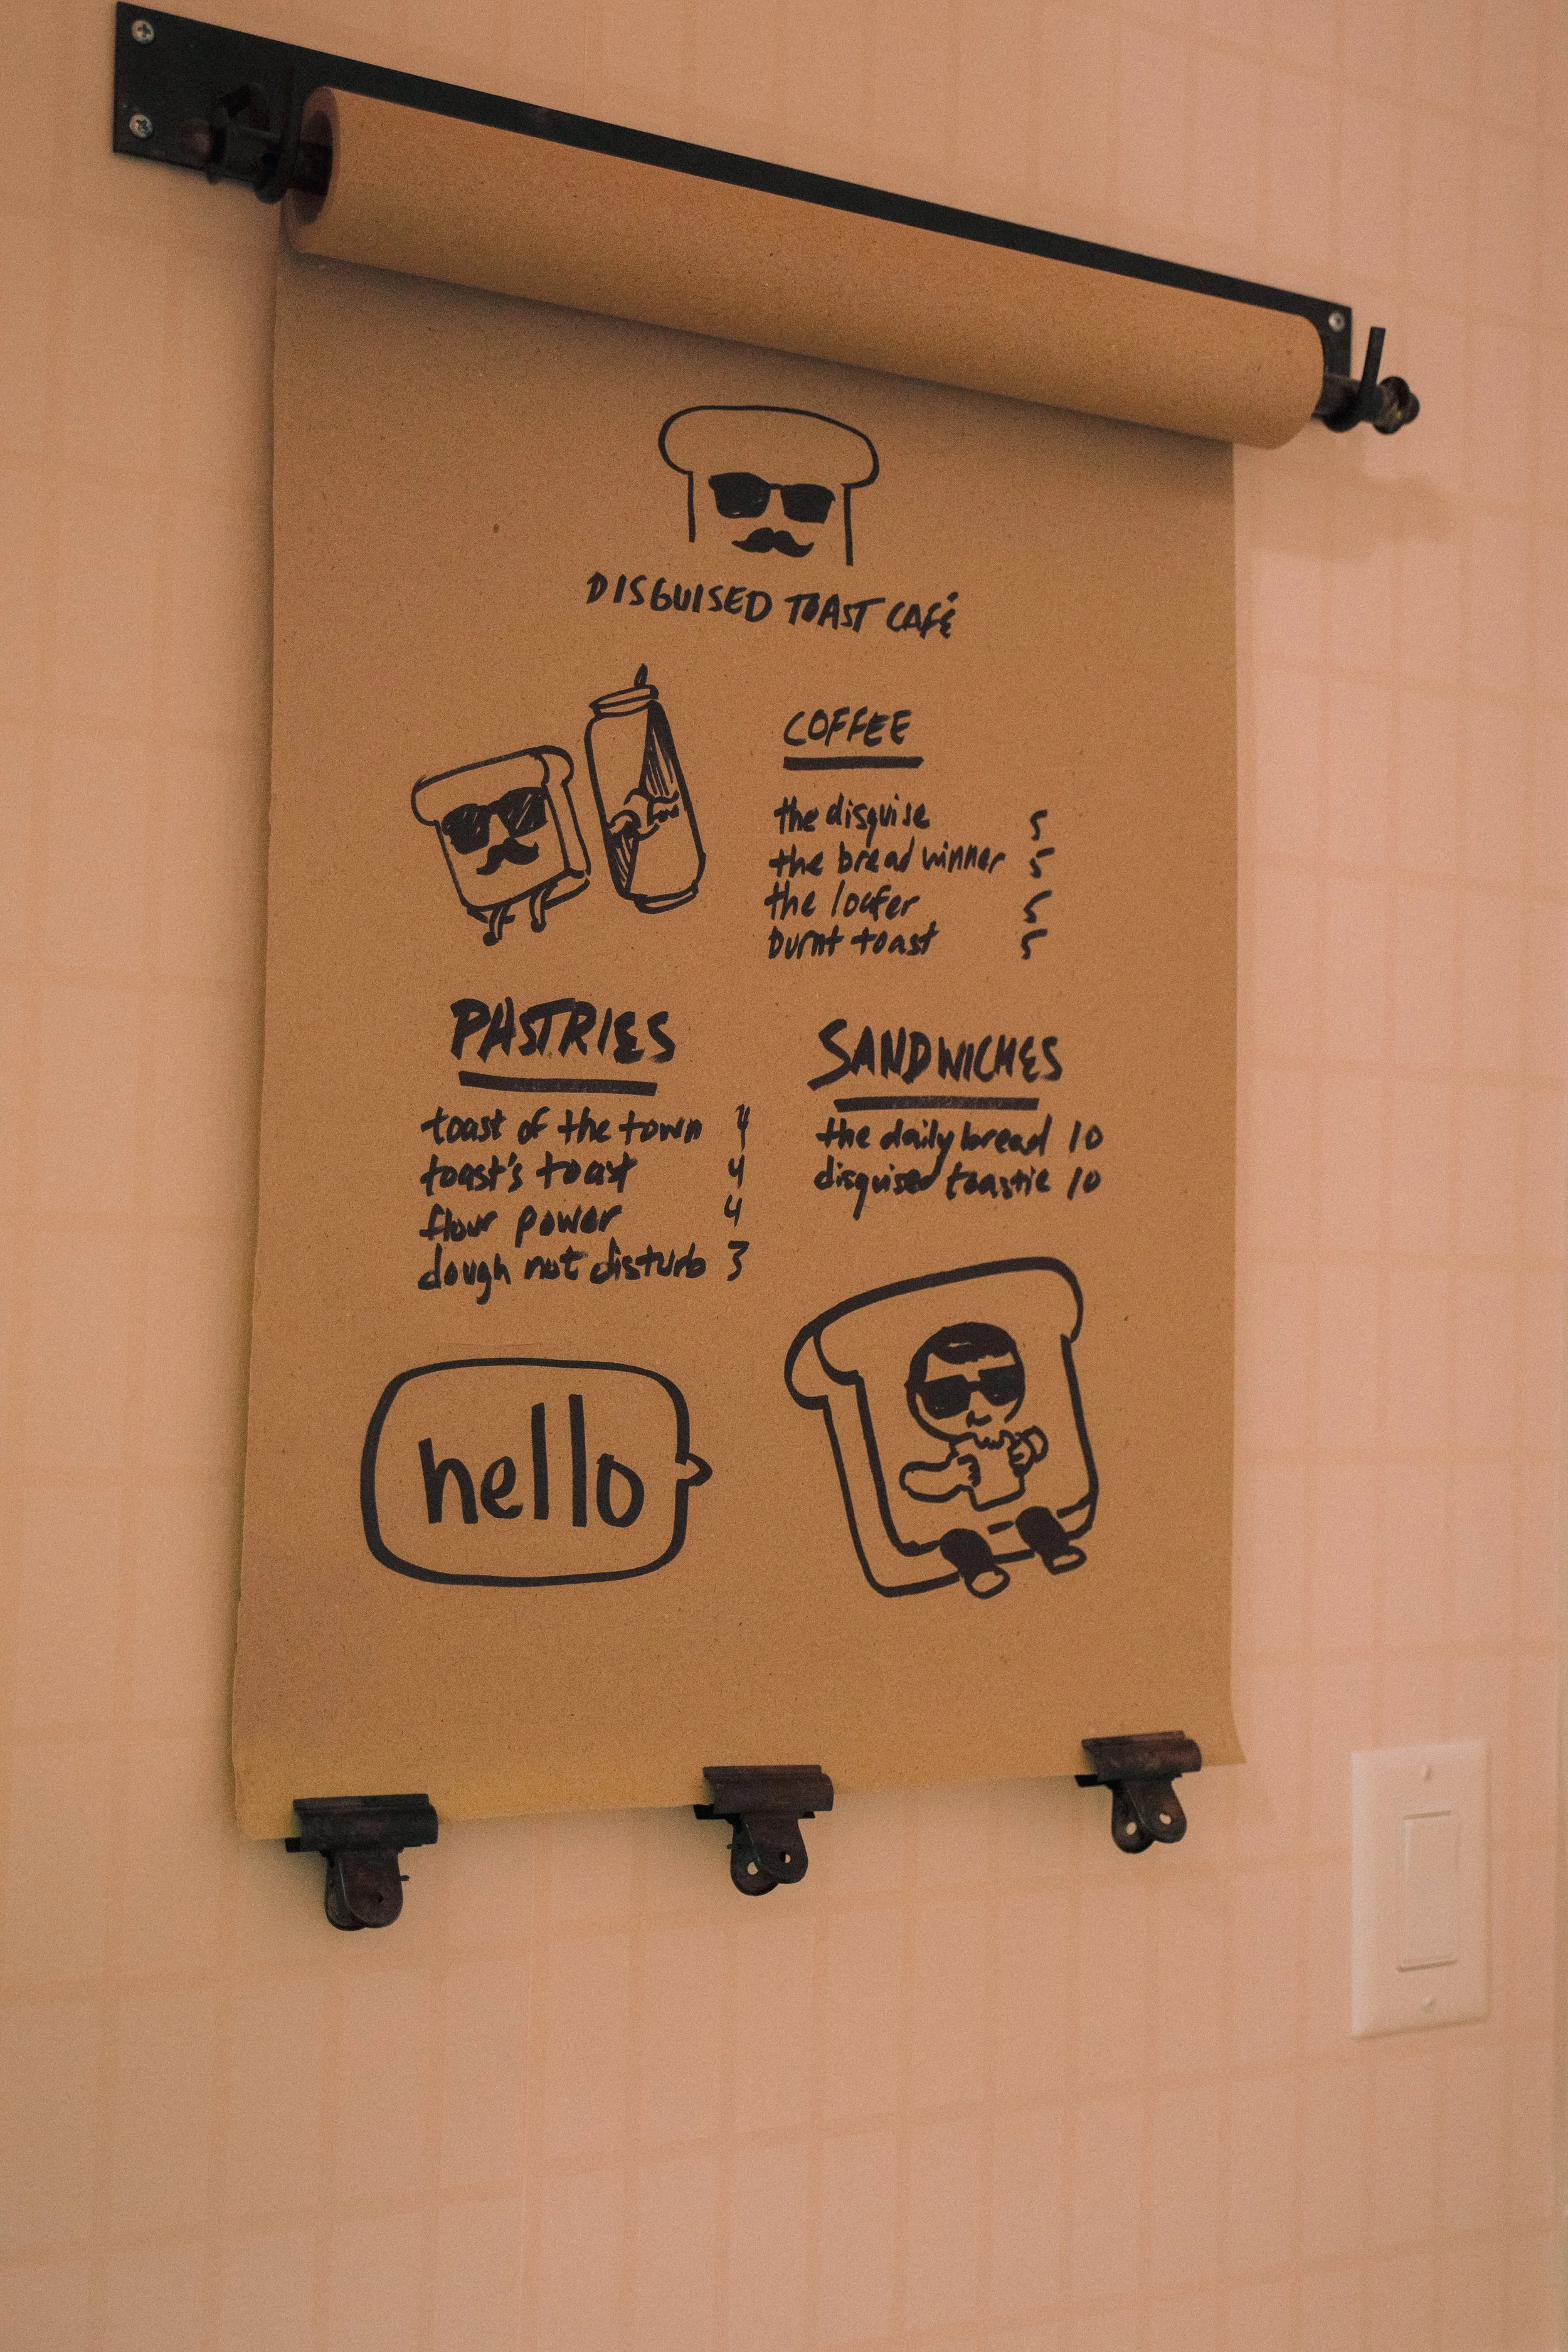 DISGUISED TOAST CAFÉ
COFFEE
the disguise 5
the bread winner 5
the loafer 5
burnt toast 5
PASTRIES
toast of the town 4
toast's toast 4
flour power 4
dough not disturb 3
SANDWICHES
the daily bread 10
disguised toastie 10
hello